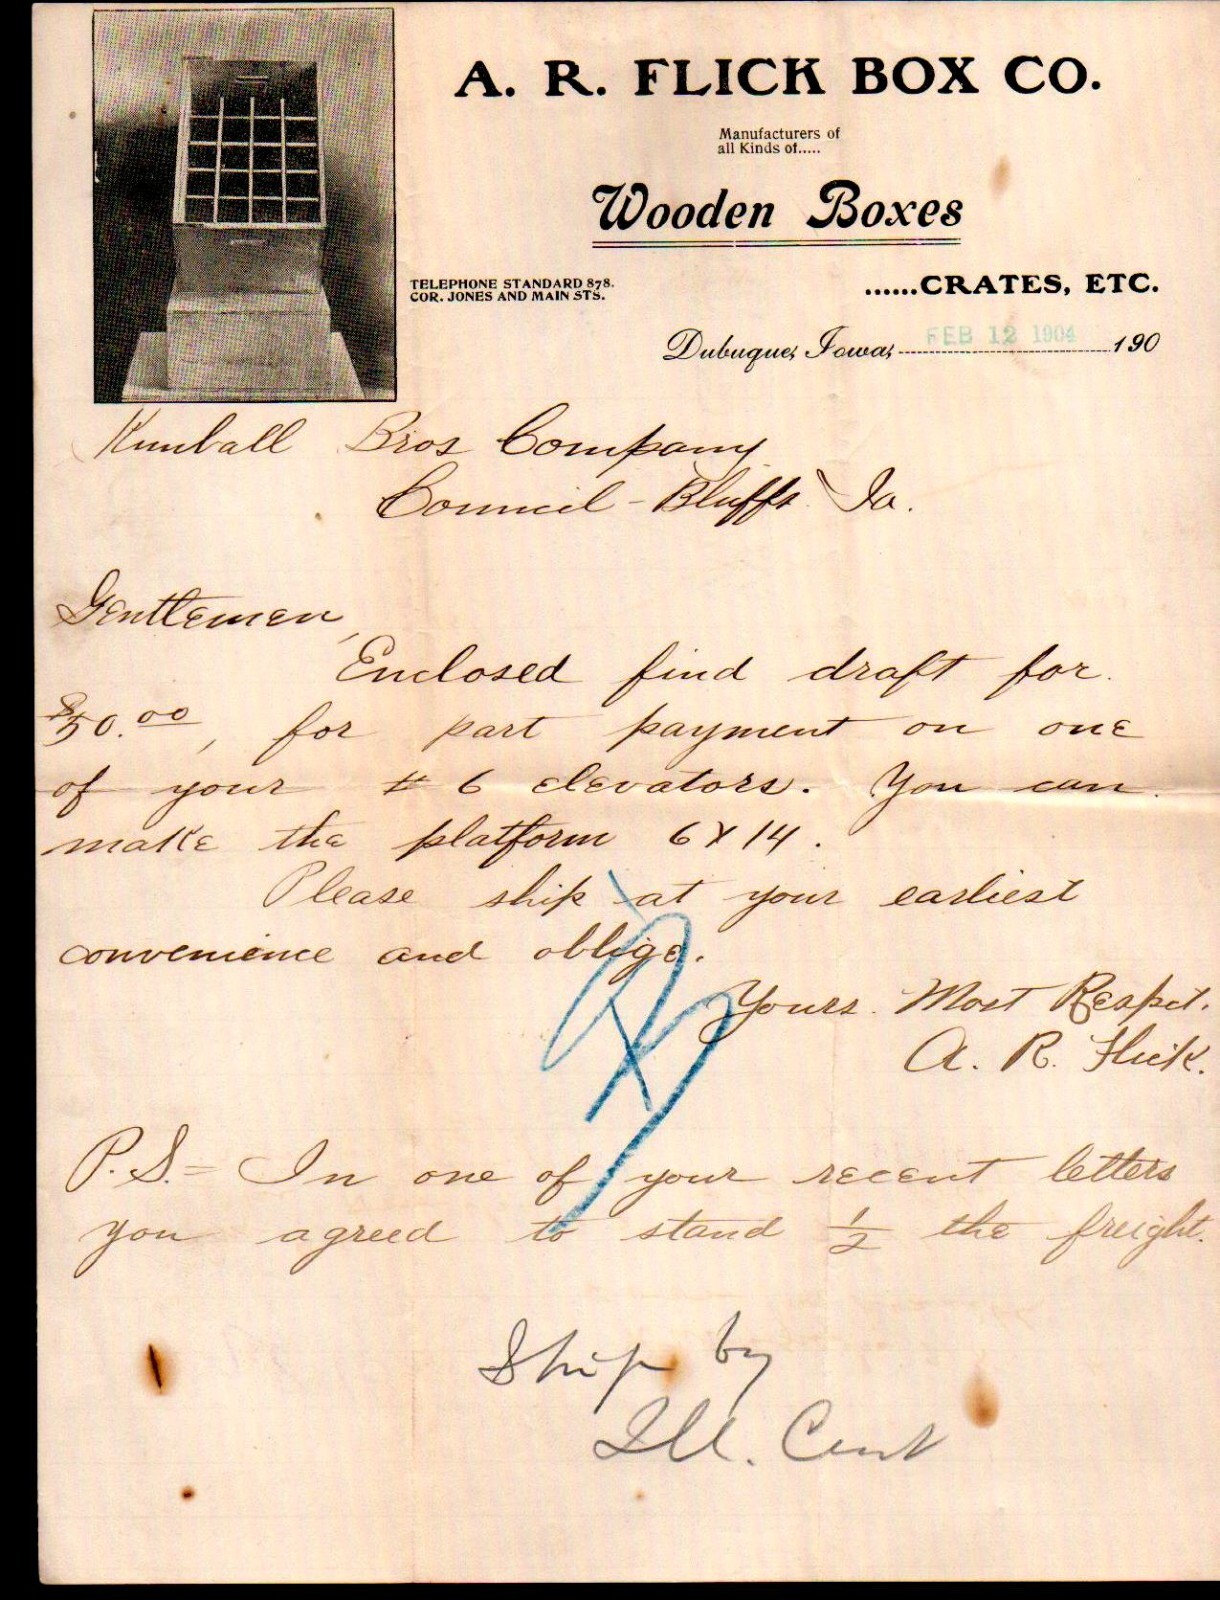 A. R. FLICK BOX CO.
Manufacturers of
all Kinds of.....
Wooden Boxes
TELEPHONE STANDARD 878.
COR. JONES AND MAIN STS.
......CRATES, ETC.
Dubuque, Iowa, FEB 12 1904 190
Kimball Bros Company
Council-Bluffs Ia.
Gentlemen,
Enclosed find draft for
$50.00, for part payment on one
of your # 6 elevators. You can
make the platform 6 X 14.
Please ship at your earliest
convenience and oblige.
Yours Most Respct.
A. R. Flick.
P. S. = In one of your recent letters
you agreed to stand 1/2 the freight.
Ship by
Ill. Cent